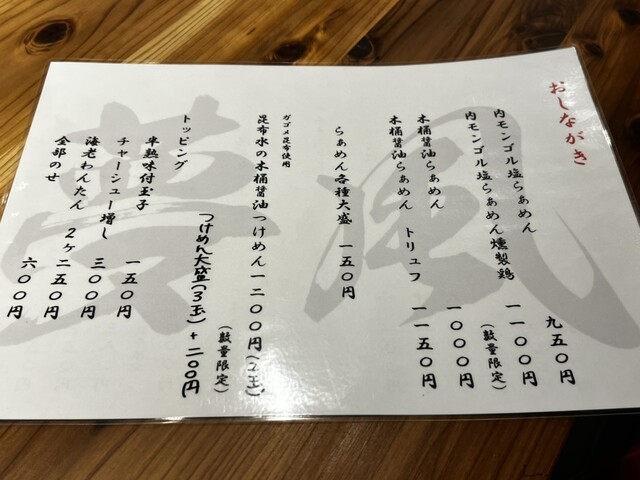 おしながき
内モンゴル塩らぁめん 九五〇円
内モンゴル塩らぁめん燻製鶏 一一〇〇円
(数量限定)
木桶醤油らぁめん 一〇〇〇円
木桶醤油らぁめん トリュフ 一一五〇円
らぁめん各種大盛 一五〇円
ガゴメ昆布使用
昆布水の木桶醤油つけめん 一二〇〇円(2玉)
(数量限定)
つけめん大盛(3玉)+二〇〇円
トッピング
半熟味付玉子 一五〇円
チャーシュー増し 三〇〇円
海老わんたん 2ヶ 二五〇円
全部のせ 六〇〇円
夢風